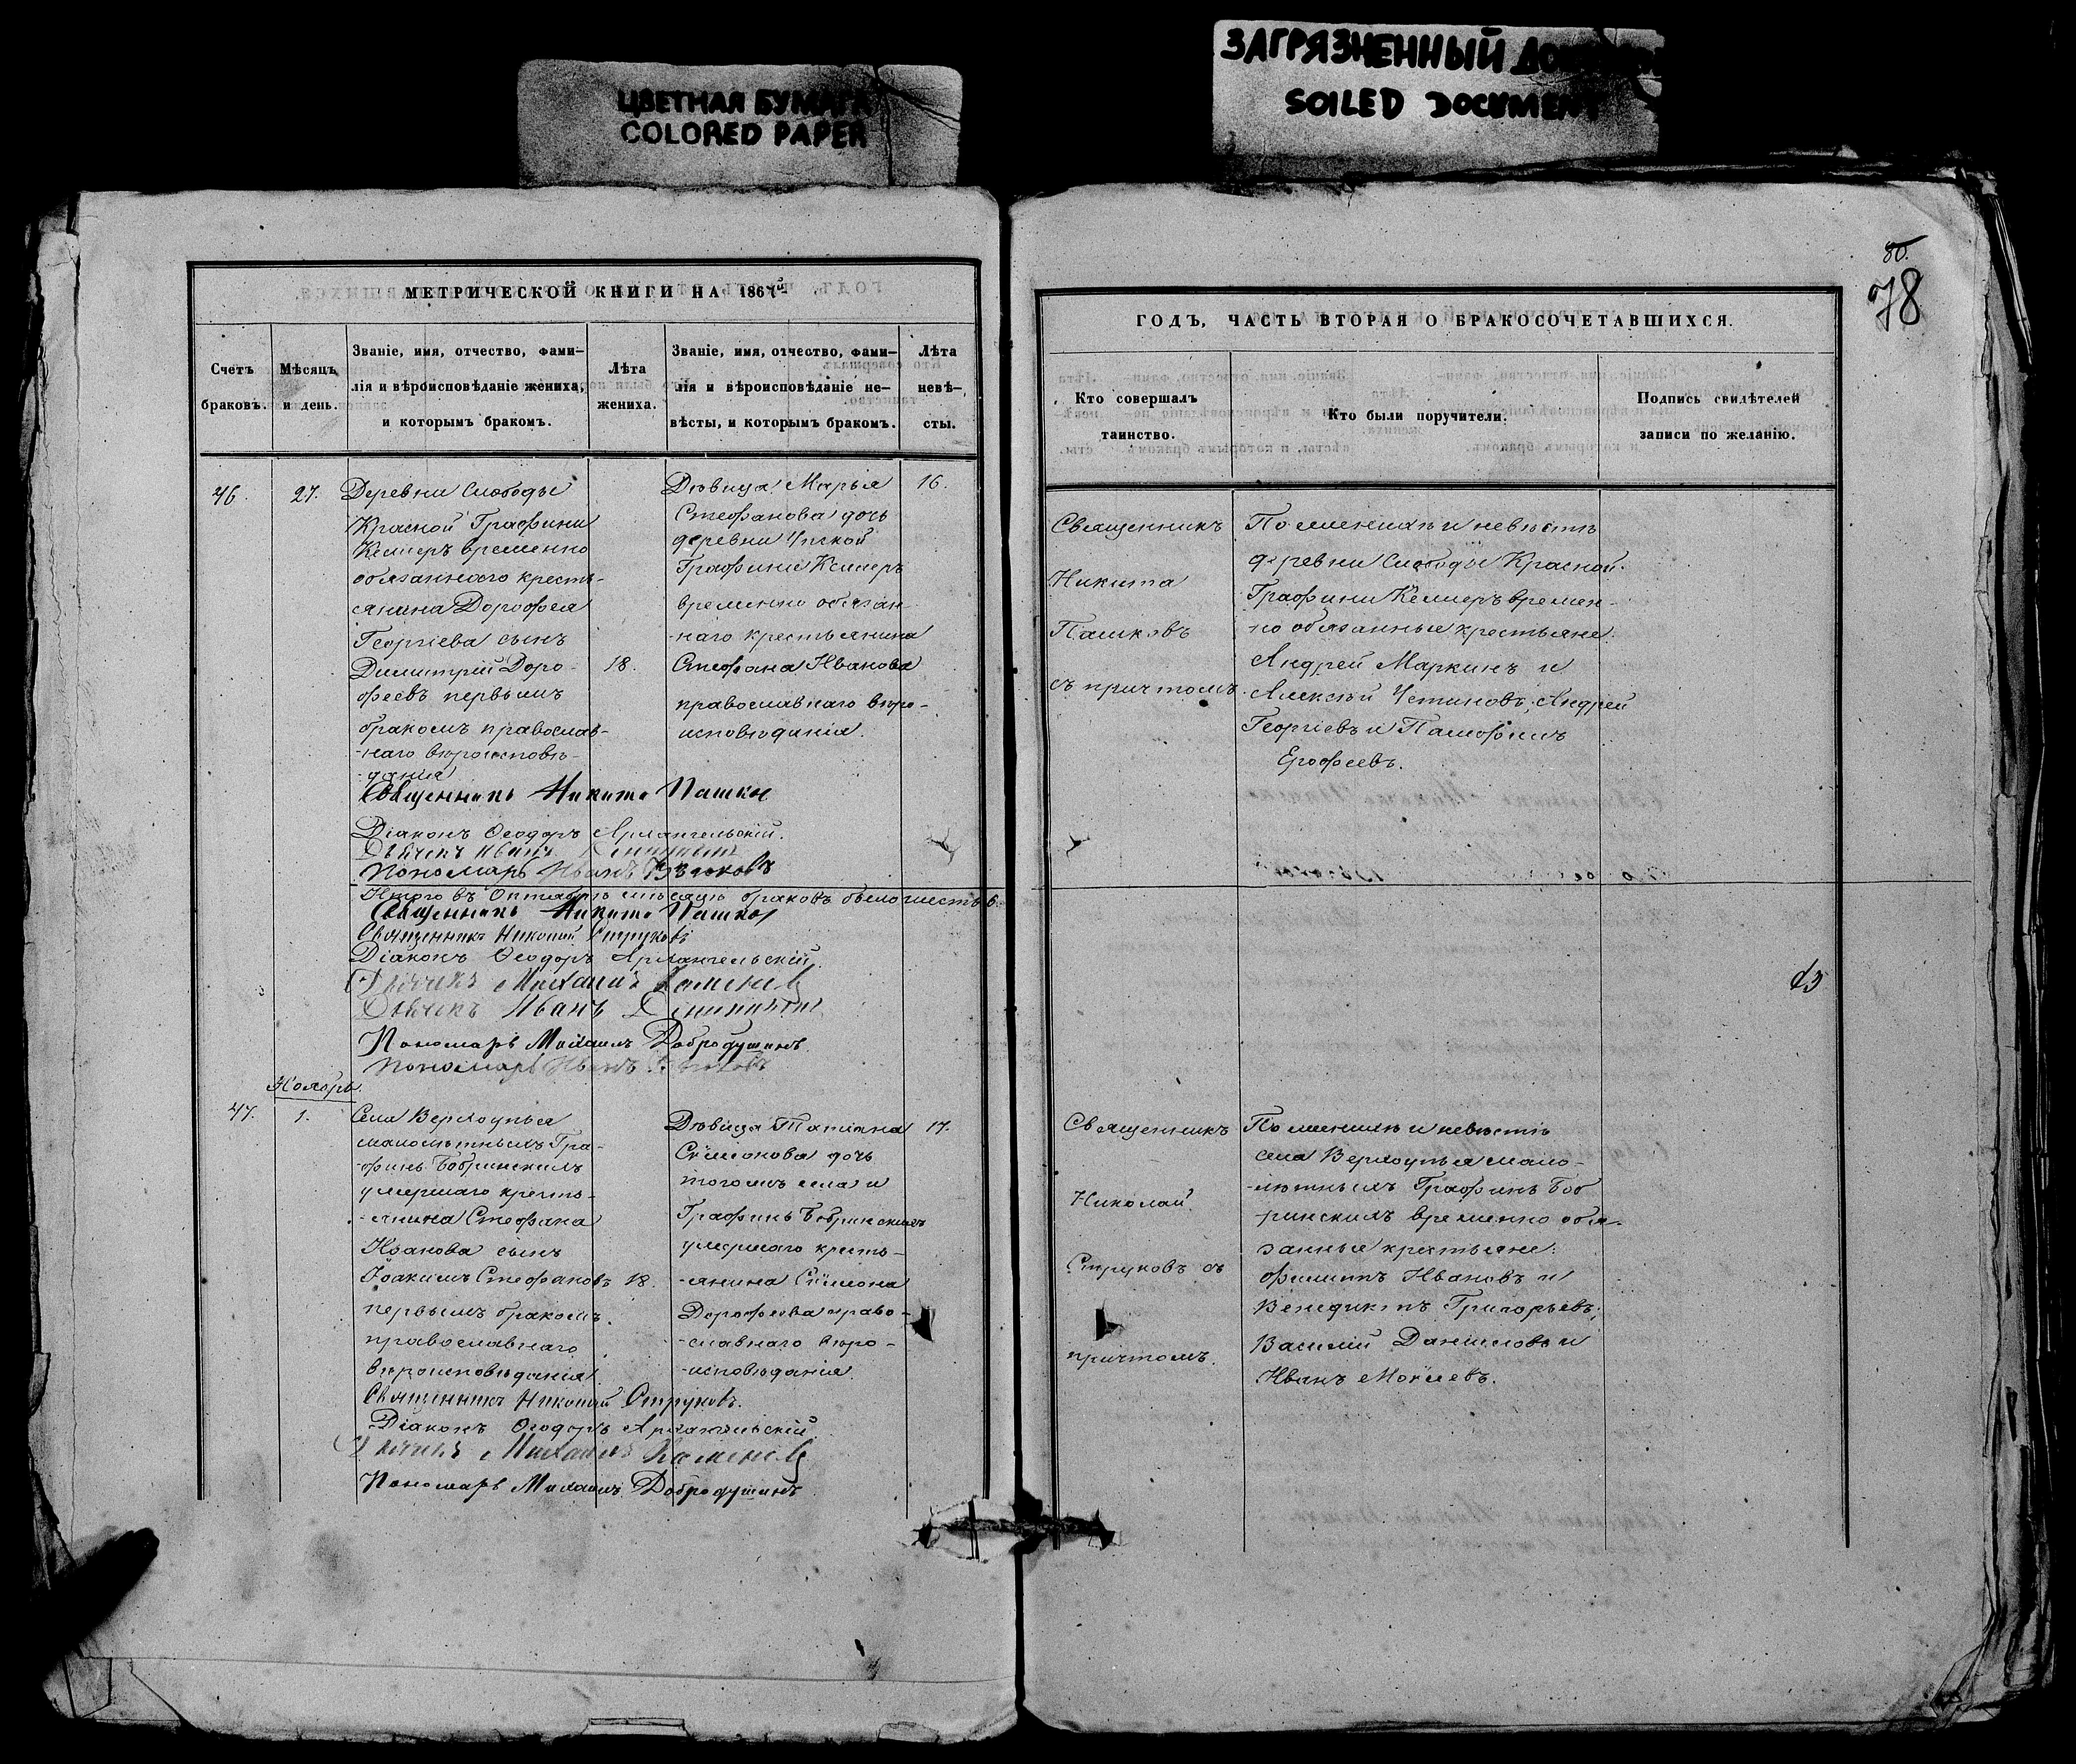 ЦВЕТНАЯ БУМАГА
COLORED PAPER
ЗАГРЯЗНЕННЫЙ
SOILED DOCUMENT
80.
78
МЕТРИЧЕСКОЙ КНИГИ НА 1867й
Счетъ
браковъ.
Мѣсяцъ
и день.
Званіе, имя, отчество, фами-
лія и вѣроисповѣданіе жениха,
и которымъ бракомъ.
Лѣта
жениха.
Званіе, имя, отчество, фами-
лія и вѣроисповѣданіе не-
вѣсты, и которымъ бракомъ.
Лѣта
невѣ-
сты.
46.
27.
Деревни Слободы
Красной Графини
Келлеръ временно
обязаннаго кресть-
янина Дорофея
Георгіева сынъ
Димитрій Доро-
феевъ первымъ
бракомъ православ-
-наго вѣроисповѣ-
-данія
18.
Дѣвица Марья
Стефанова дочь
деревни
Графини Келлеръ
временно обязан-
-наго крестьянина
Стефана Иванова
православнаго вѣро-
исповѣданія.
16.
Священникъ Никита Пашковъ
Діаконъ Ѳеодоръ Архангельскій.
Дьячекъ Иванъ
Пономарь Иванъ
Итого въ Октябрѣ мѣсяцѣ браковъ было шесть 6.
Священникъ Никита Пашковъ
Священникъ Николай Струковъ
Діаконъ Ѳеодоръ Архангельскій.
Дьячекъ Михаилъ
Дьячекъ Иванъ
Пономарь Михаилъ Добродушинъ
Пономарь Иванъ
Ноябрь.
47.
1.
Села Верхоупья
малолѣтнымъ Гра-
-финь Бобринскимъ
умершаго кресть-
-янина Стефана
Иванова сынъ
Іоакимъ Стефановъ
первымъ бракомъ
православнаго
вѣроисповѣданія.
18.
Дѣвица Татіана
Симонова дочь
тогожъ села и
Графинь Бобринскихъ
умершаго кресть-
-янина Симона
Дорофеева право-
-славнаго вѣро-
-исповѣданія.
17.
Священникъ Николай Струковъ.
Діаконъ Ѳеодоръ Архангельскій.
Дьячекъ Михаилъ
Пономарь Михаилъ Добродушинъ
ГОДЪ, ЧАСТЬ ВТОРАЯ О БРАКОСОЧЕТАВШИХСЯ.
Кто совершалъ
таинство.
Кто были поручители.
Подпись свидѣтелей
записи по желанію.
Священникъ
Никита
Пашковъ
съ причтомъ.
По женихѣ и невѣстѣ
деревни Слободы Красной.
Графини Келлеръ времен-
но обязанные крестьяне.
Андрей Маркинъ и
Алексѣй Устиновъ; Андрей
Георгіевъ и Памфилъ
Ерофеевъ.
Священникъ
Николай
Струковъ съ
причтомъ.
По женихѣ и невѣстѣ
села Верхоупья мало-
-лѣтныхъ Графинь Боб
ринскихъ временно обя-
занные крестьяне:
Филиппъ Ивановъ и
Венедиктъ Григорьевъ;
Василій Даниловъ и
Иванъ Моѵсеевъ.